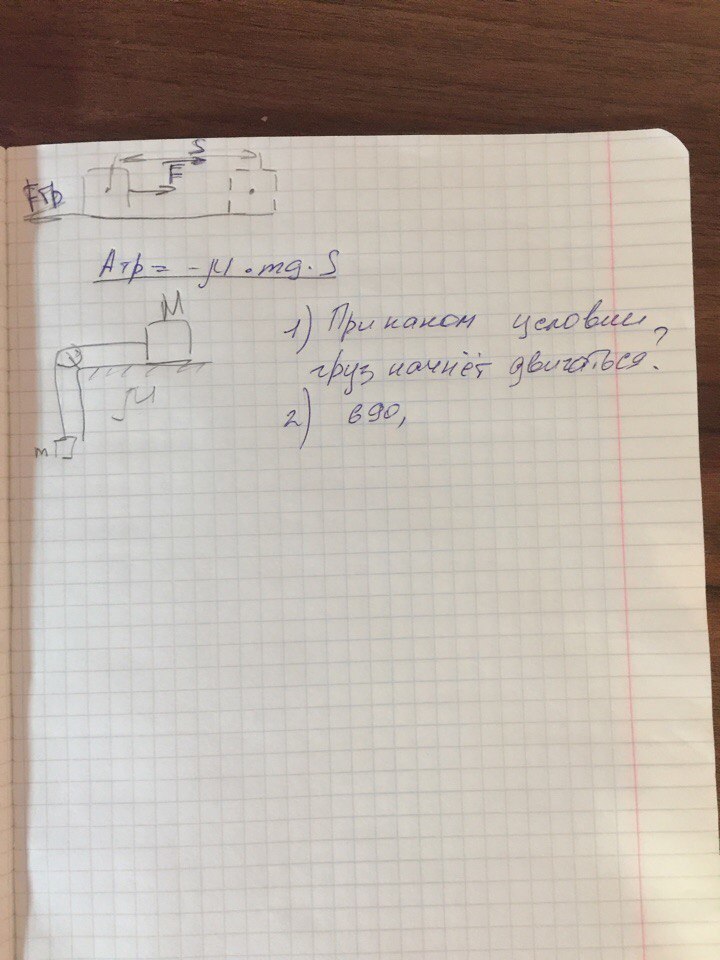 S
F
Fтр
Aтр = -μ · mg · S
M
1) При каком условии
груз начнёт двигаться?
μ
2) в90,
m